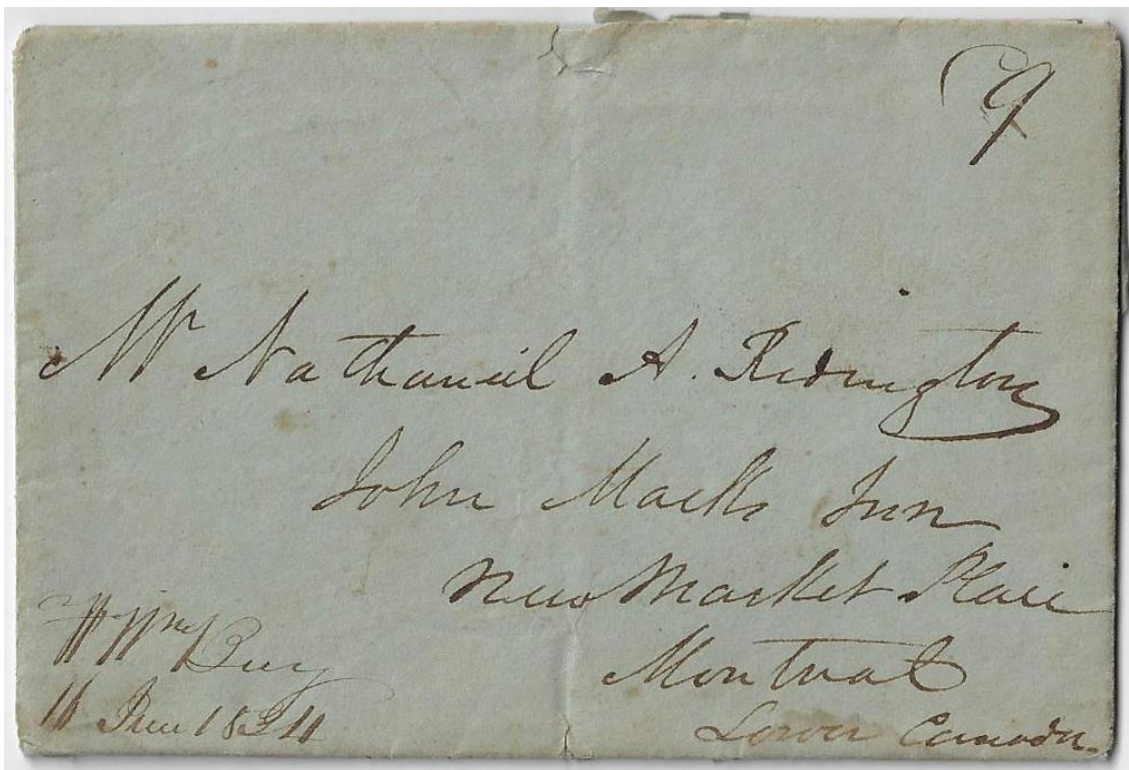 9
Mr Nathaniel A. Ridington
John Macks Inn
New Market Place
Montreal
Lower Canada
June 1834